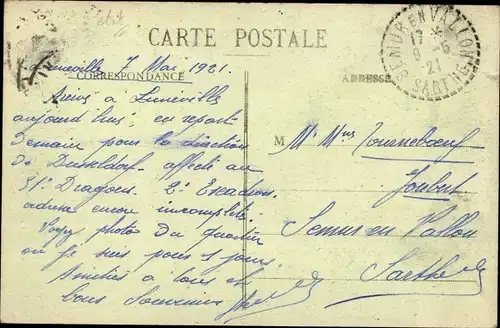 CARTE POSTALE
CORRESPONDANCE
ADRESSE
SEMUR EN VALLON
17 *
9 - 5
21
SARTHE
Luneville 7 Mai 1921.
à Luneville
aujourd'hui, en repart
demain pour la direction
de Dusseldorf affecté au
31e Dragons. 2e Escadron.
adresse encore incomplète.
photo du quartier
où je suis pour 2 jours.
Amitiés à tous et
bons souvenirs
M
Mr Mme Tourneboeuf
Joubert
Semur en Vallon
Sarthe